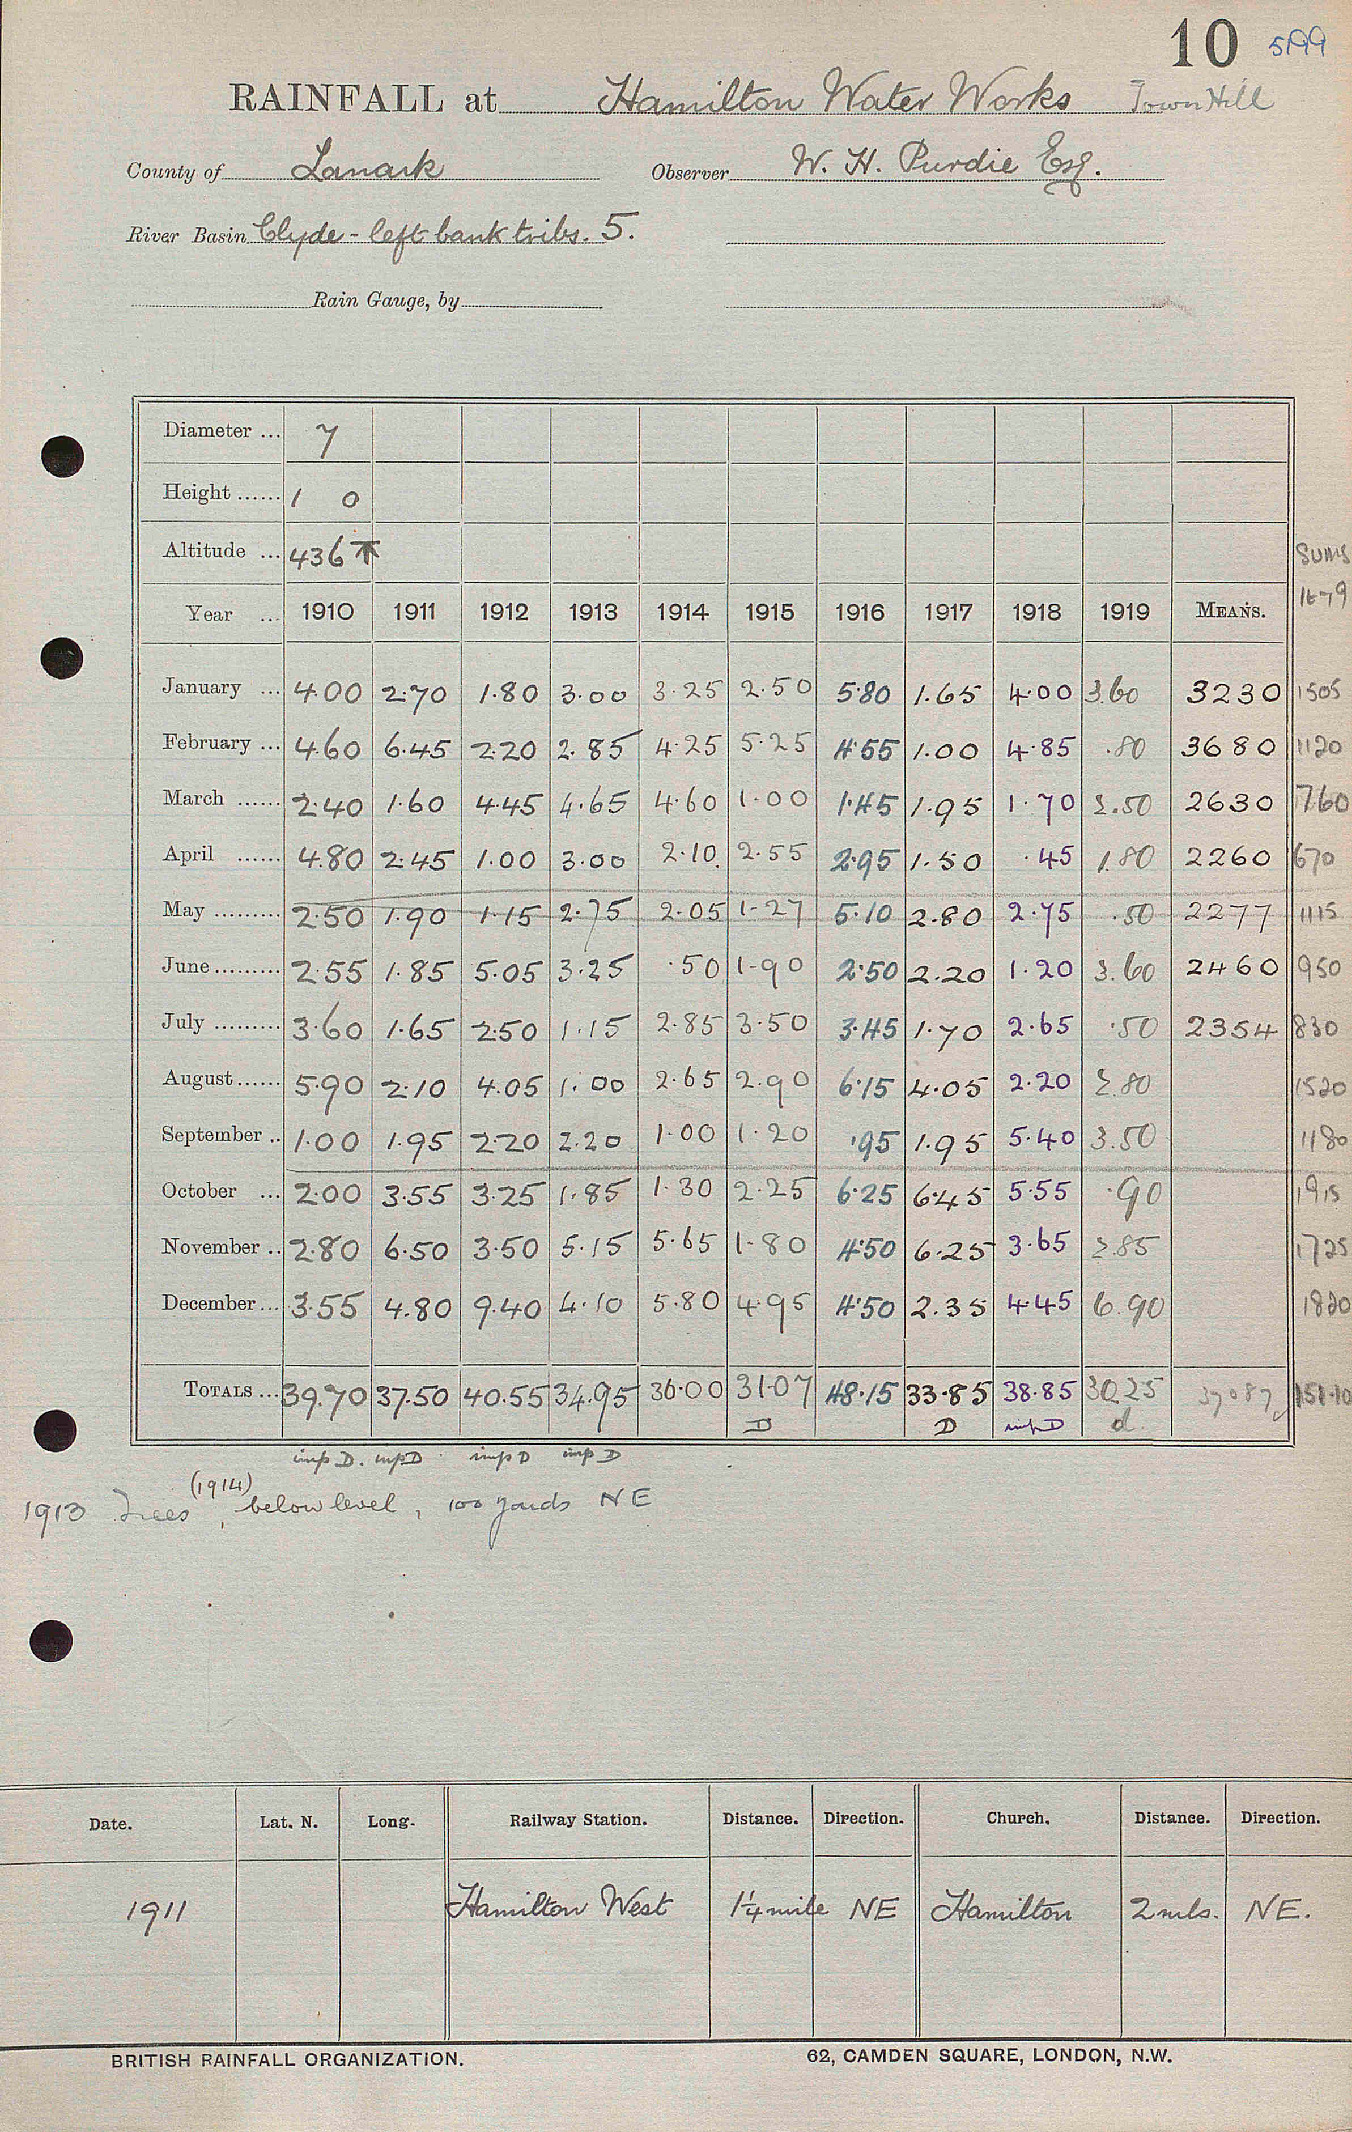 10 5199
RAINFALL at Hamilton Water Works Town Hill
County of Lanark Observer W. H. Purdie Esq.
River Basin Clyde - left bank tribs. 5.
Rain Gauge, by
Diameter ... 7
Height ...... 1 0
Altitude ... 436 ↑ SUMS
Year ... 1910 1911 1912 1913 1914 1915 1916 1917 1918 1919 MEANS. 16-79
January ... 4.00 2.70 1.80 3.00 3.25 2.50 5.80 1.65 4.00 3.60 3230 1505
February ... 4.60 6.45 2.20 2.85 4.25 5.25 4.55 1.00 4.85 .80 3680 1120
March ...... 2.40 1.60 4.45 4.65 4.60 1.00 1.45 1.95 1.70 2.50 2630 760
April ...... 4.80 2.45 1.00 3.00 2.10 2.55 2.95 1.50 .45 1.80 2260 670
May ......... 2.50 1.90 1.15 2.75 2.05 1.27 5.10 2.80 2.75 .50 2277 1115
June ......... 2.55 1.85 5.05 3.25 .50 1.90 2.50 2.20 1.20 3.60 2460 950
July ......... 3.60 1.65 2.50 1.15 2.85 3.50 3.45 1.70 2.65 .50 2354 830
August ...... 5.90 2.10 4.05 1.00 2.65 2.90 6.15 4.05 2.20 2.80 1520
September .. 1.00 1.95 2.20 2.20 1.00 1.20 .95 1.95 5.40 3.50 1180
October ... 2.00 3.55 3.25 1.85 1.30 2.25 6.25 6.45 5.55 .90 1915
November .. 2.80 6.50 3.50 5.15 5.65 1.80 4.50 6.25 3.65 2.85 1725
December ... 3.55 4.80 9.40 4.10 5.80 4.95 4.50 2.35 4.45 6.90 1820
TOTALS ... 39.70 37.50 40.55 34.95 36.00 31.07 48.15 33.85 38.85 30.25 37087 151.10
D D imp D d.
imp D. imp D imp D imp D
(1914)
1913 Trees, below level, 100 yards NE
Date. Lat. N. Long. Railway Station. Distance. Direction. Church. Distance. Direction.
1911 Hamilton West 1¼ mile NE Hamilton 2 mls. NE.
BRITISH RAINFALL ORGANIZATION. 62, CAMDEN SQUARE, LONDON, N.W.